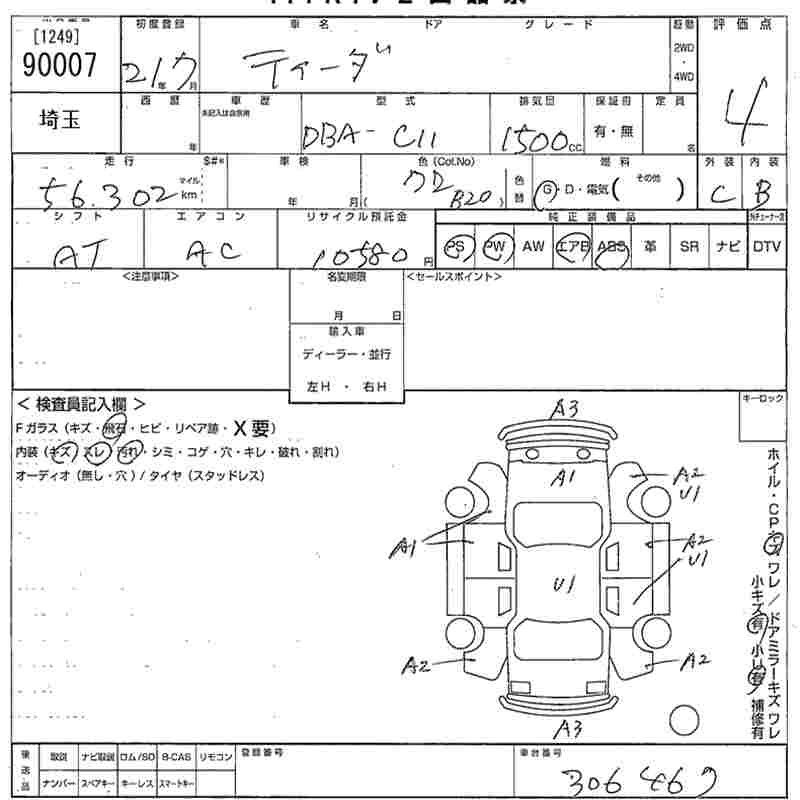 [1249]
90007
初度登録
車名
ドア
グレード
駆動
評価点
21 年 月
ティーダ
2WD
・
4WD
4
埼玉
西暦
車歴
型式
排気回
保証書
定員
年
未記入は自家用
DBA-C11
1500 cc
有・無
名
走行
S#*
車検
色(Col.No)
色替
燃料
外装
内装
56.302
マイル
km
年
月
(B20)
G・D・電気(その他)
C
B
シフト
エアコン
リサイクル預託金
純正装備品
AT
AC
10580 円
PS
PW
AW
エアB
ABS
革
SR
ナビ
DTV
<注意事項>
名変期限
<セールスポイント>
月
日
輸入車
ディーラー・並行
左H ・ 右H
< 検査員記入欄 >
キーロック
Fガラス(キズ・飛石・ヒビ・リペア跡・X要)
内装(キズ・スレ・汚れ・シミ・コゲ・穴・キレ・破れ・割れ)
オーディオ(無し・穴)/タイヤ(スタッドレス)
A3
A1
A2
U1
A1
A2
U1
U1
A2
A2
A3
ホイル・CP・ ワレ/ドアミラーキズ ワレ
小キズ有 小U有 補修有
後送品
取説
ナビ取説
ロム/SD
B-CAS
リモコン
登録番号
車台番号
ナンバー
スペアキー
キーレス
スマートキー
306467